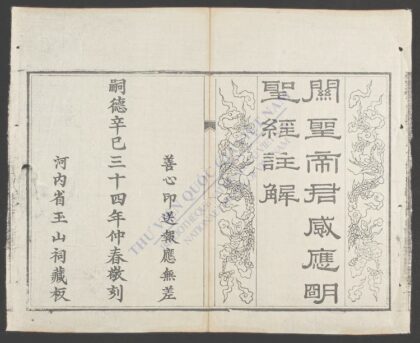 關聖帝君感應明
聖經註解
善心印送報應無差
嗣德辛巳三十四年仲春敬刻
河内省玉山祠藏板